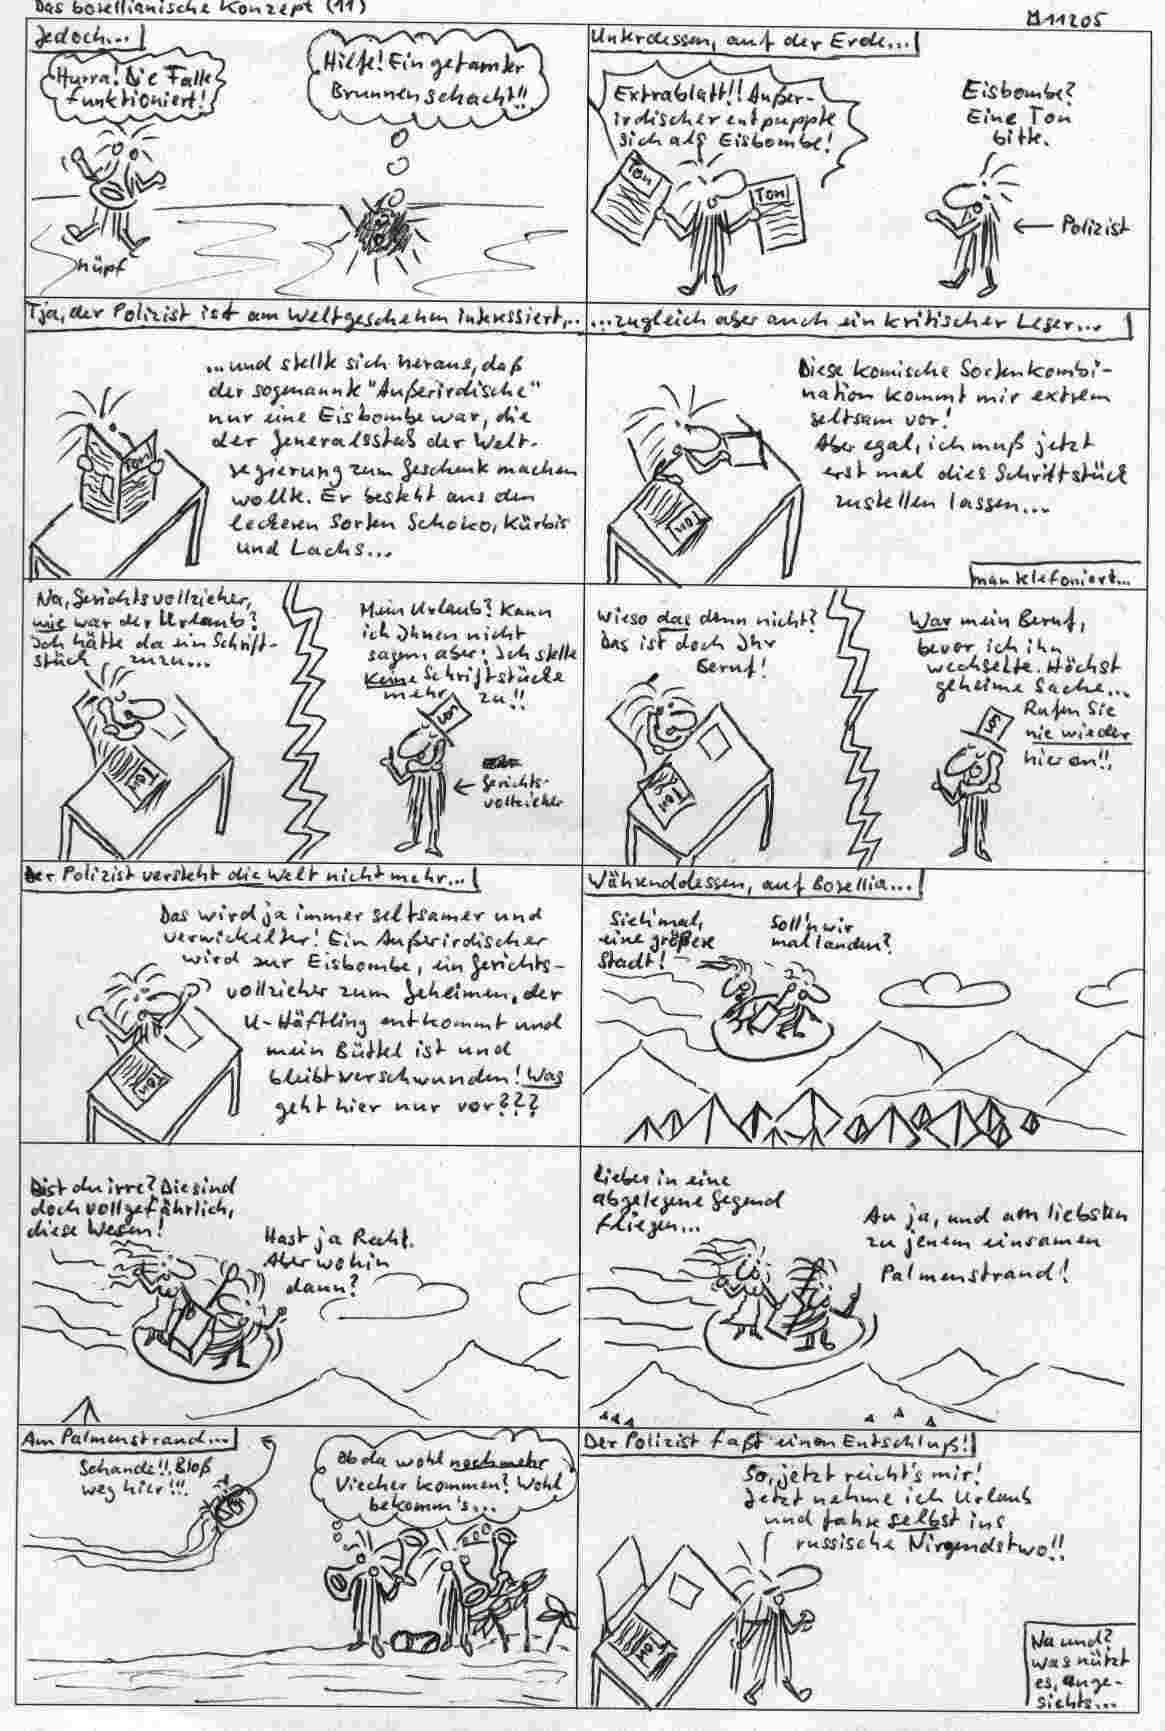 Das bosellianische Konzept (11)
M11205
Jedoch...
Hurra! Die Falle
funktioniert!
Hilfe! Ein getarnter
Brunnenschacht!!
hüpf
Unterdessen, auf der Erde...
Extrablatt!! Außer-
irdischer entpuppte
sich als Eisbombe!
Ton
Ton
Eisbombe?
Eine Ton
bitte.
← Polizist
Tja, der Polizist ist am Weltgeschehen interessiert,..
...und stellte sich heraus, daß
der sogenannte "Außerirdische"
nur eine Eisbombe war, die
der Generalsstab der Welt-
regierung zum Geschenk machen
wollte. Er besteht aus den
leckeren Sorten Schoko, Kürbis
und Lachs...
Ton
...zugleich aber auch ein kritischer Leser...
Diese komische Sortenkombi-
nation kommt mir extrem
seltsam vor!
Aber egal, ich muß jetzt
erst mal dies Schriftstück
zustellen lassen...
Ton
man klefoniert...
Na, Gerichtsvollzieher,
wie war der Urlaub?
Ich hätte da ein Schrift-
stück zuzu...
Ton
Mein Urlaub? Kann
ich Ihnen nicht
sagen, aber: Ich stelle
keine Schriftstücke
mehr zu!!
← Gerichts-
vollzieher
Wieso das denn nicht?
Das ist doch Ihr
Beruf!
Ton
War mein Beruf,
bevor ich ihn
wechselte. Höchst
geheime Sache...
Rufen Sie
nie wieder
hier an!!
Der Polizist versteht die Welt nicht mehr...
Das wird ja immer seltsamer und
verwickelter! Ein Außerirdischer
wird zur Eisbombe, ein Gerichts-
vollzieher zum Geheimen, der
U-Häftling entkommt und
mein Büttel ist und
bleibt verschwunden! Was
geht hier nur vor???
Ton
Währenddessen, auf Bosellia...
Sieh mal,
eine größere
Stadt!
Soll'n wir
mal landen?
Bist du irre? Die sind
doch vollgefährlich,
diese Wesen!
Hast ja Recht.
Aber wohin
dann?
Lieber in eine
abgelegene Gegend
fliegen...
Au ja, und am liebsten
zu jenem einsamen
Palmenstrand!
Am Palmenstrand...
Schande!! Bloß
weg hier!!!
Ob da wohl noch mehr
Viecher kommen? Wohl
bekomm's...
Der Polizist faßt einen Entschluß!
So, jetzt reicht's mir!
Jetzt nehme ich Urlaub
und fahre selbst ins
russische Nirgendstwo!!
Ton
Na und?
Was nützt
es, ange-
sichts...